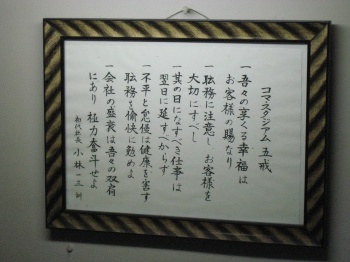 コマスタジアム 五戒
一 吾々の享くる幸福は
お客様の賜なり
一 職務に注意し お客様を
大切にすべし
一 其の日になすべき仕事は
翌日に延すべからず
一 不平と怠慢は健康を害す
職務を愉快に勉めよ
一 会社の盛衰は吾々の双肩
にあり 極力奮斗せよ
初代社長 小林一三 訓